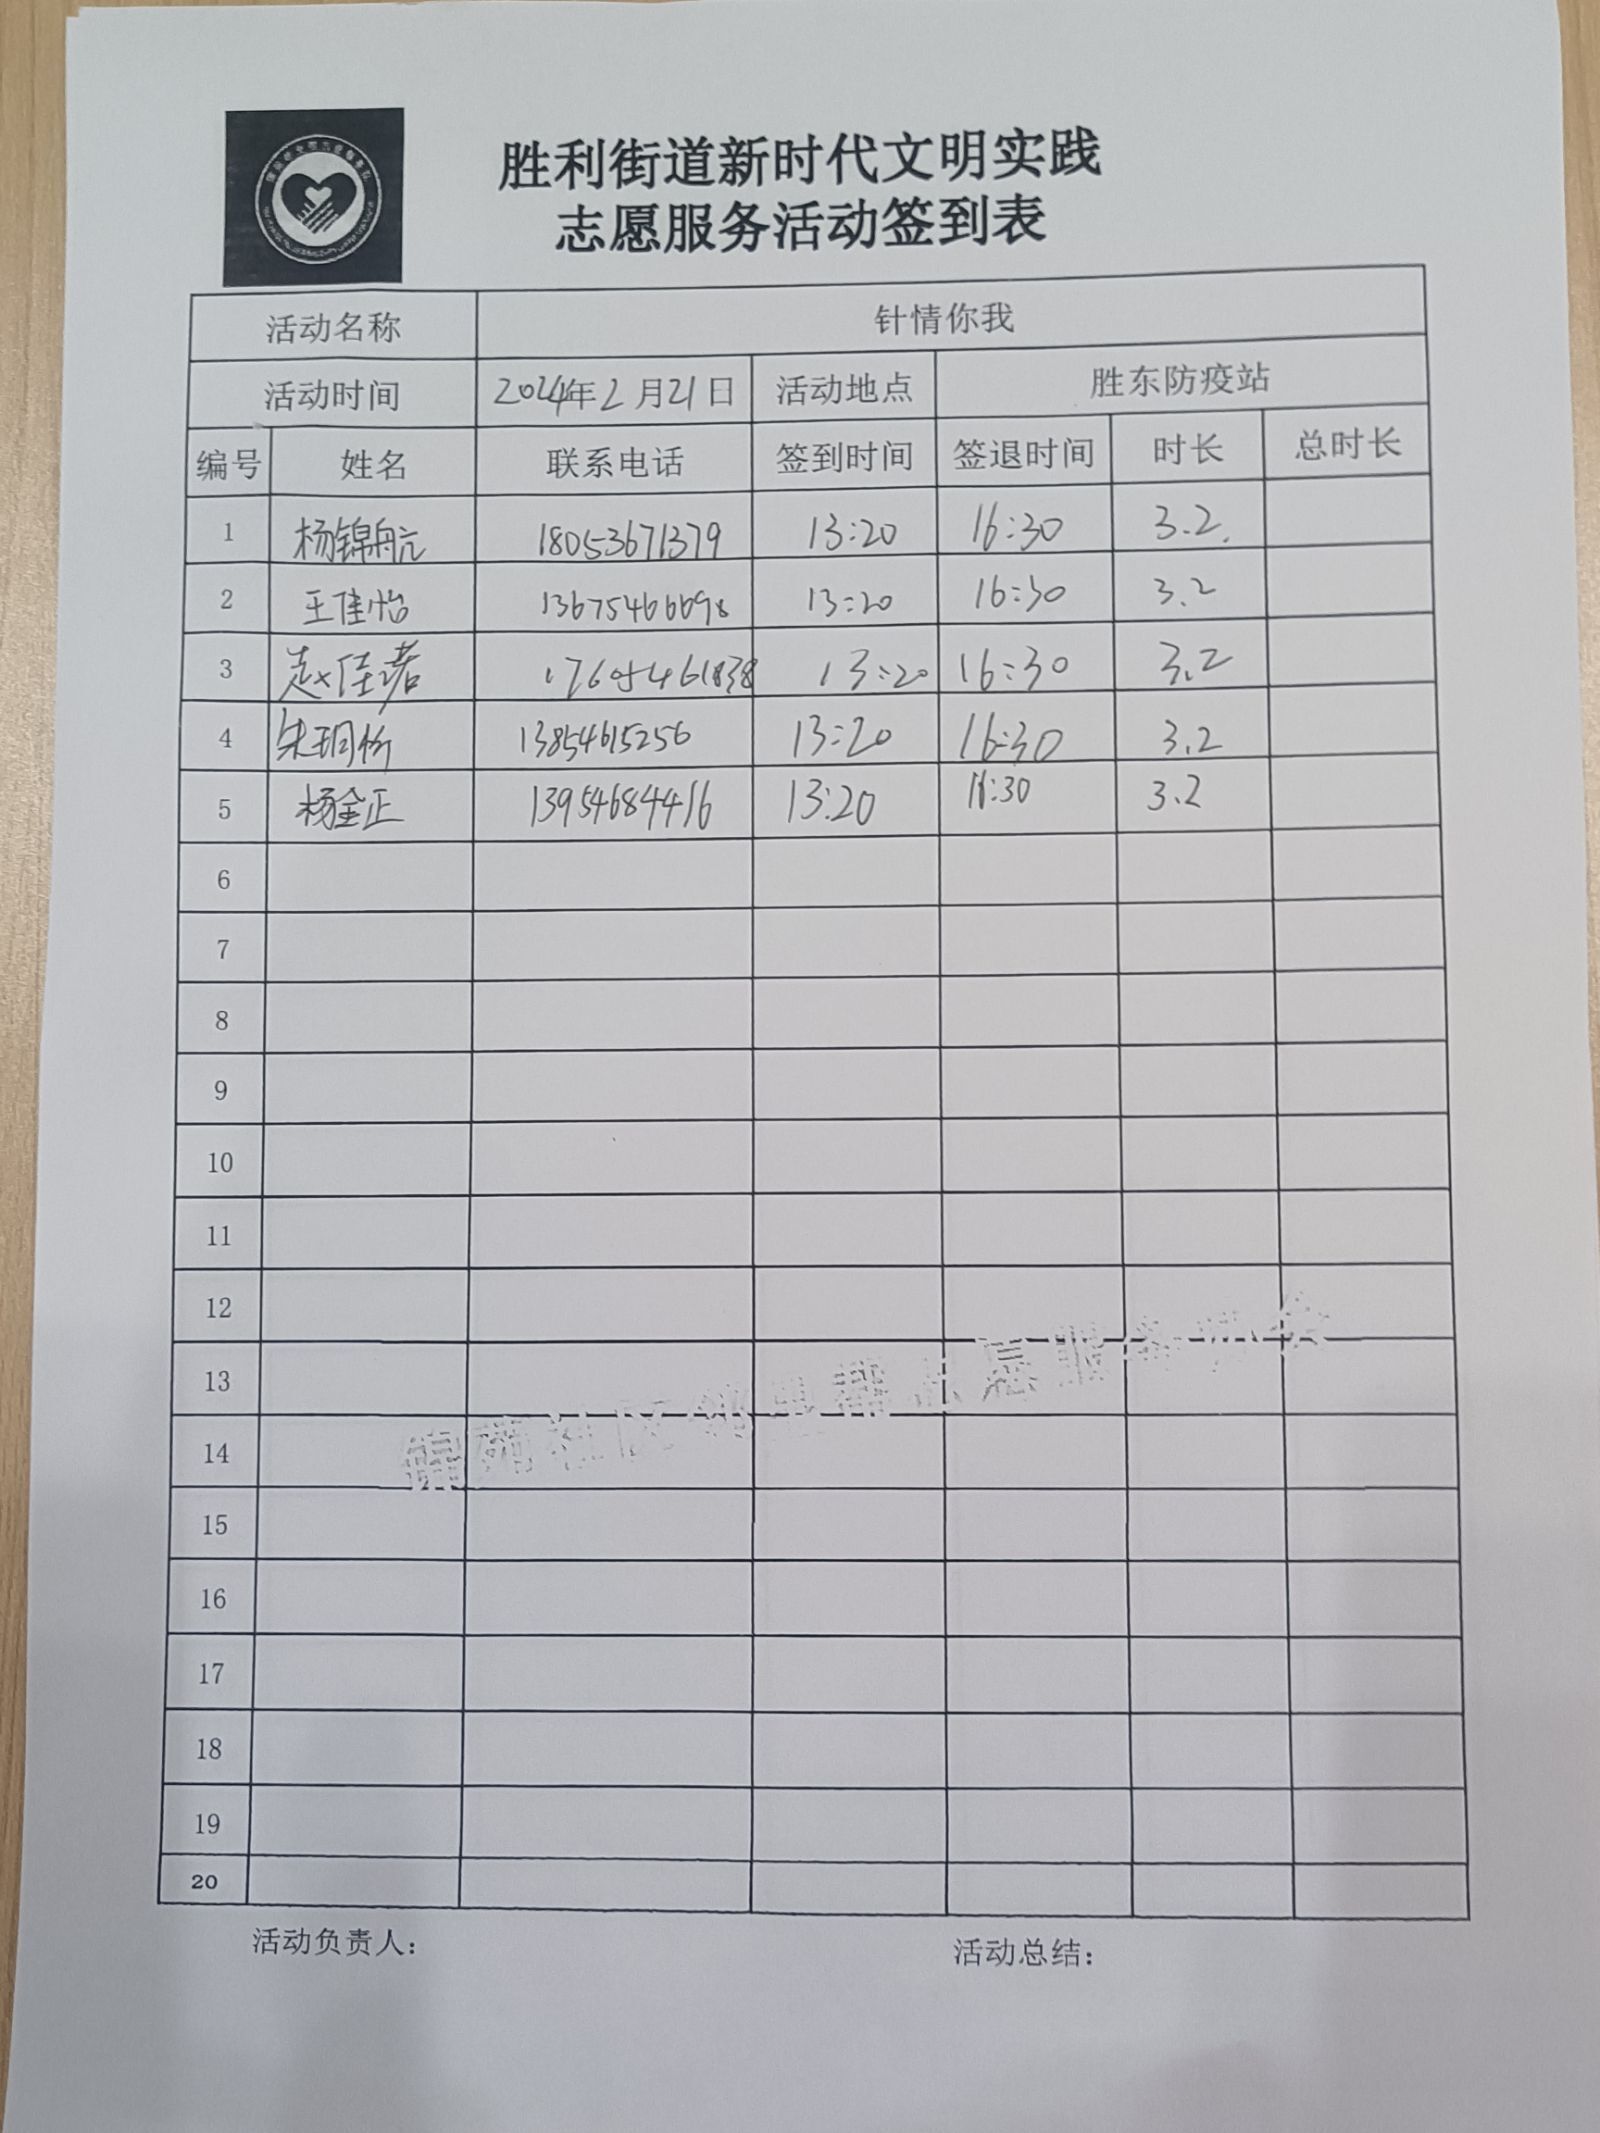 胜利街道新时代文明实践
志愿服务活动签到表
活动名称 针情你我
活动时间 2024年2月21日 活动地点 胜东防疫站
编号 姓名 联系电话 签到时间 签退时间 时长 总时长
1 杨锦航 18053671379 13:20 16:30 3.2.
2 王佳怡 13675466698 13:20 16:30 3.2
3 赵佳诺 13:20 16:30 3.2
4 13854615256 13:20 16:30 3.2
5 杨金正 13954684416 13:20 3.2
6
7
8
9
10
11
12
13
锦苑社区邻里帮志愿服务协会
14
15
16
17
18
19
20
活动负责人： 活动总结：